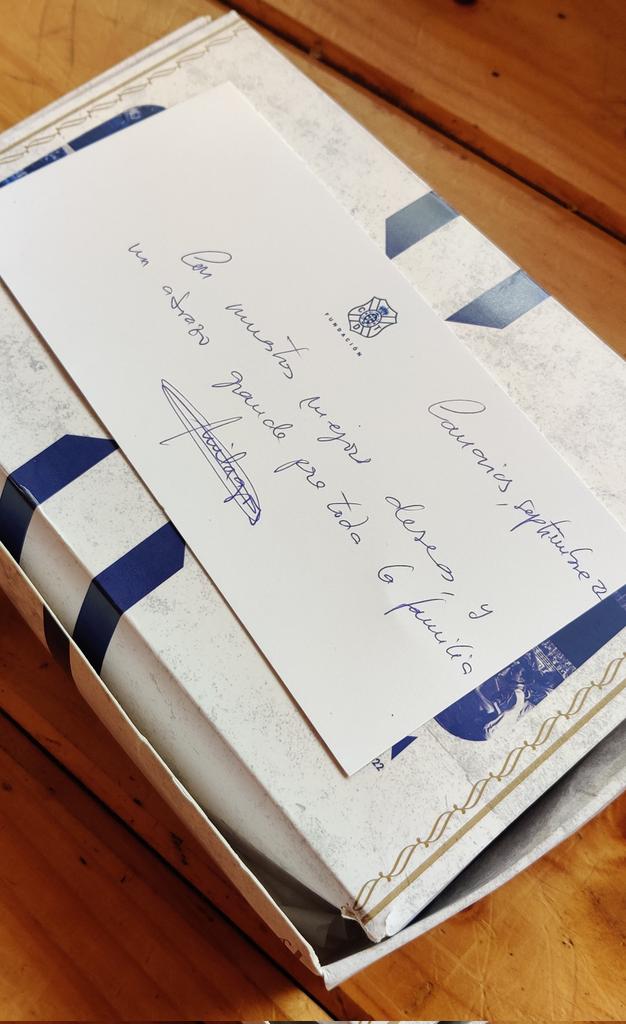 CDT
FUNDACIÓN
Canarias, septiembre 2
Con nuestros mejores deseos, y
un abrazo grande para toda la familia
22